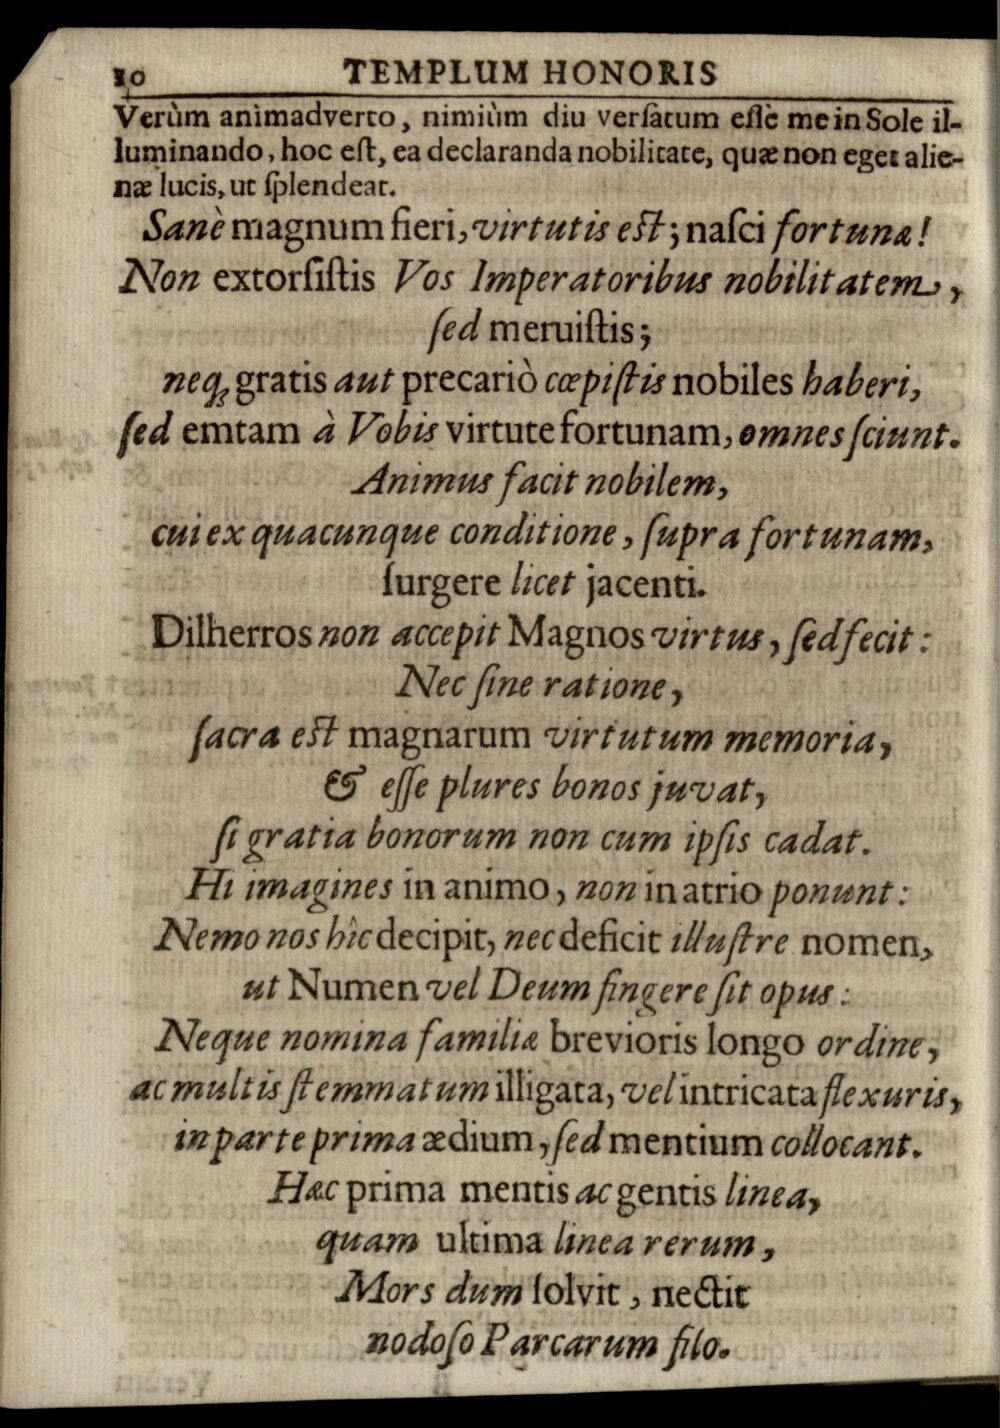 10 TEMPLUM HONORIS
Verùm animadverto, nimiùm diu versatum esse me in Sole il-
luminando, hoc est, ea declaranda nobilitate, quæ non eget alie-
næ lucis, ut splendeat.
Sanè magnum fieri, virtutis est; nasci fortunæ!
Non extorsistis Vos Imperatoribus nobilitatem,
sed meruistis;
neq; gratis aut precariò cœpistis nobiles haberi,
sed emtam à Vobis virtute fortunam, omnes sciunt.
Animus facit nobilem,
cui ex quacunque conditione, supra fortunam,
surgere licet jacenti.
Dilherros non accepit Magnos virtus, sed fecit:
Nec sine ratione,
sacra est magnarum virtutum memoria,
& esse plures bonos juvat,
si gratia bonorum non cum ipsis cadat.
Hi imagines in animo, non in atrio ponunt:
Nemo nos hîc decipit, nec deficit illustre nomen,
ut Numen vel Deum fingere sit opus:
Neque nomina familiæ brevioris longo ordine,
ac multis stemmatum illigata, vel intricata flexuris,
in parte prima ædium, sed mentium collocant.
Hæc prima mentis ac gentis linea,
quam ultima linea rerum,
Mors dum solvit, nectit
nodoso Parcarum filo.